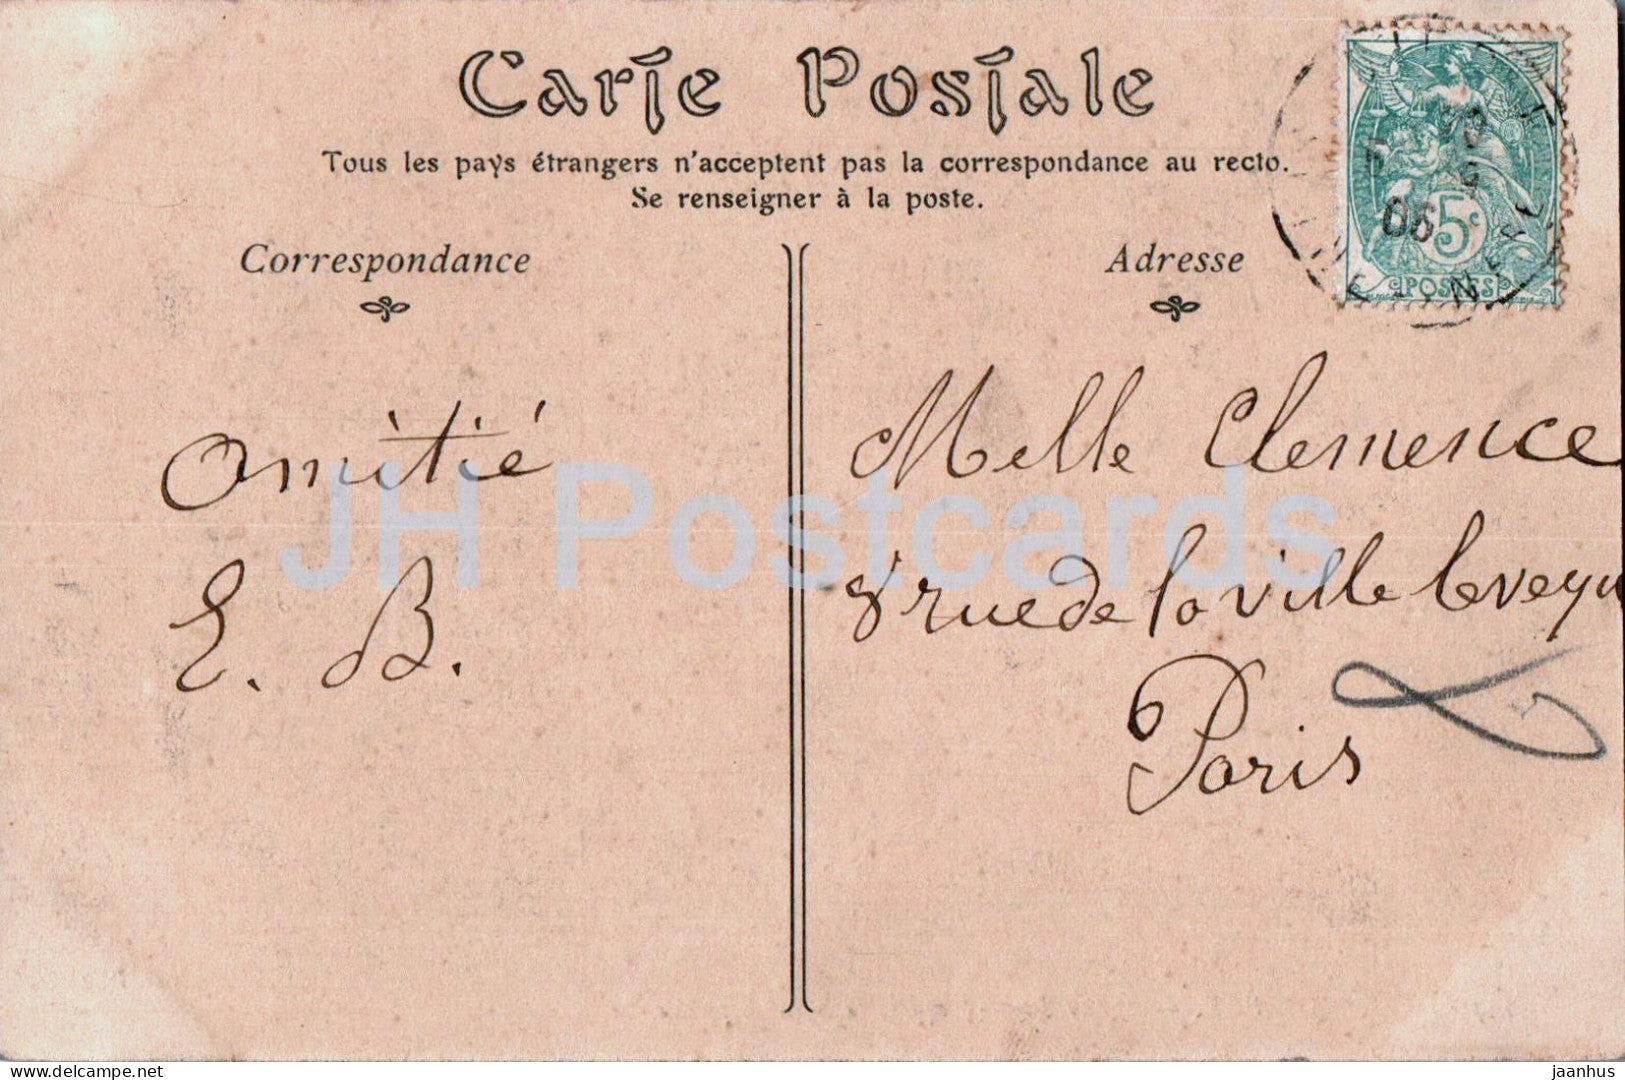 Carte Postale
Tous les pays étrangers n'acceptent pas la correspondance au recto.
Se renseigner à la poste.
Correspondance
Adresse
5c
POSTES
06
Amitié
E. B.
Melle Clemence
8 rue de la ville leveque
Paris
JH Postcards
delcampe.net
jaanhus